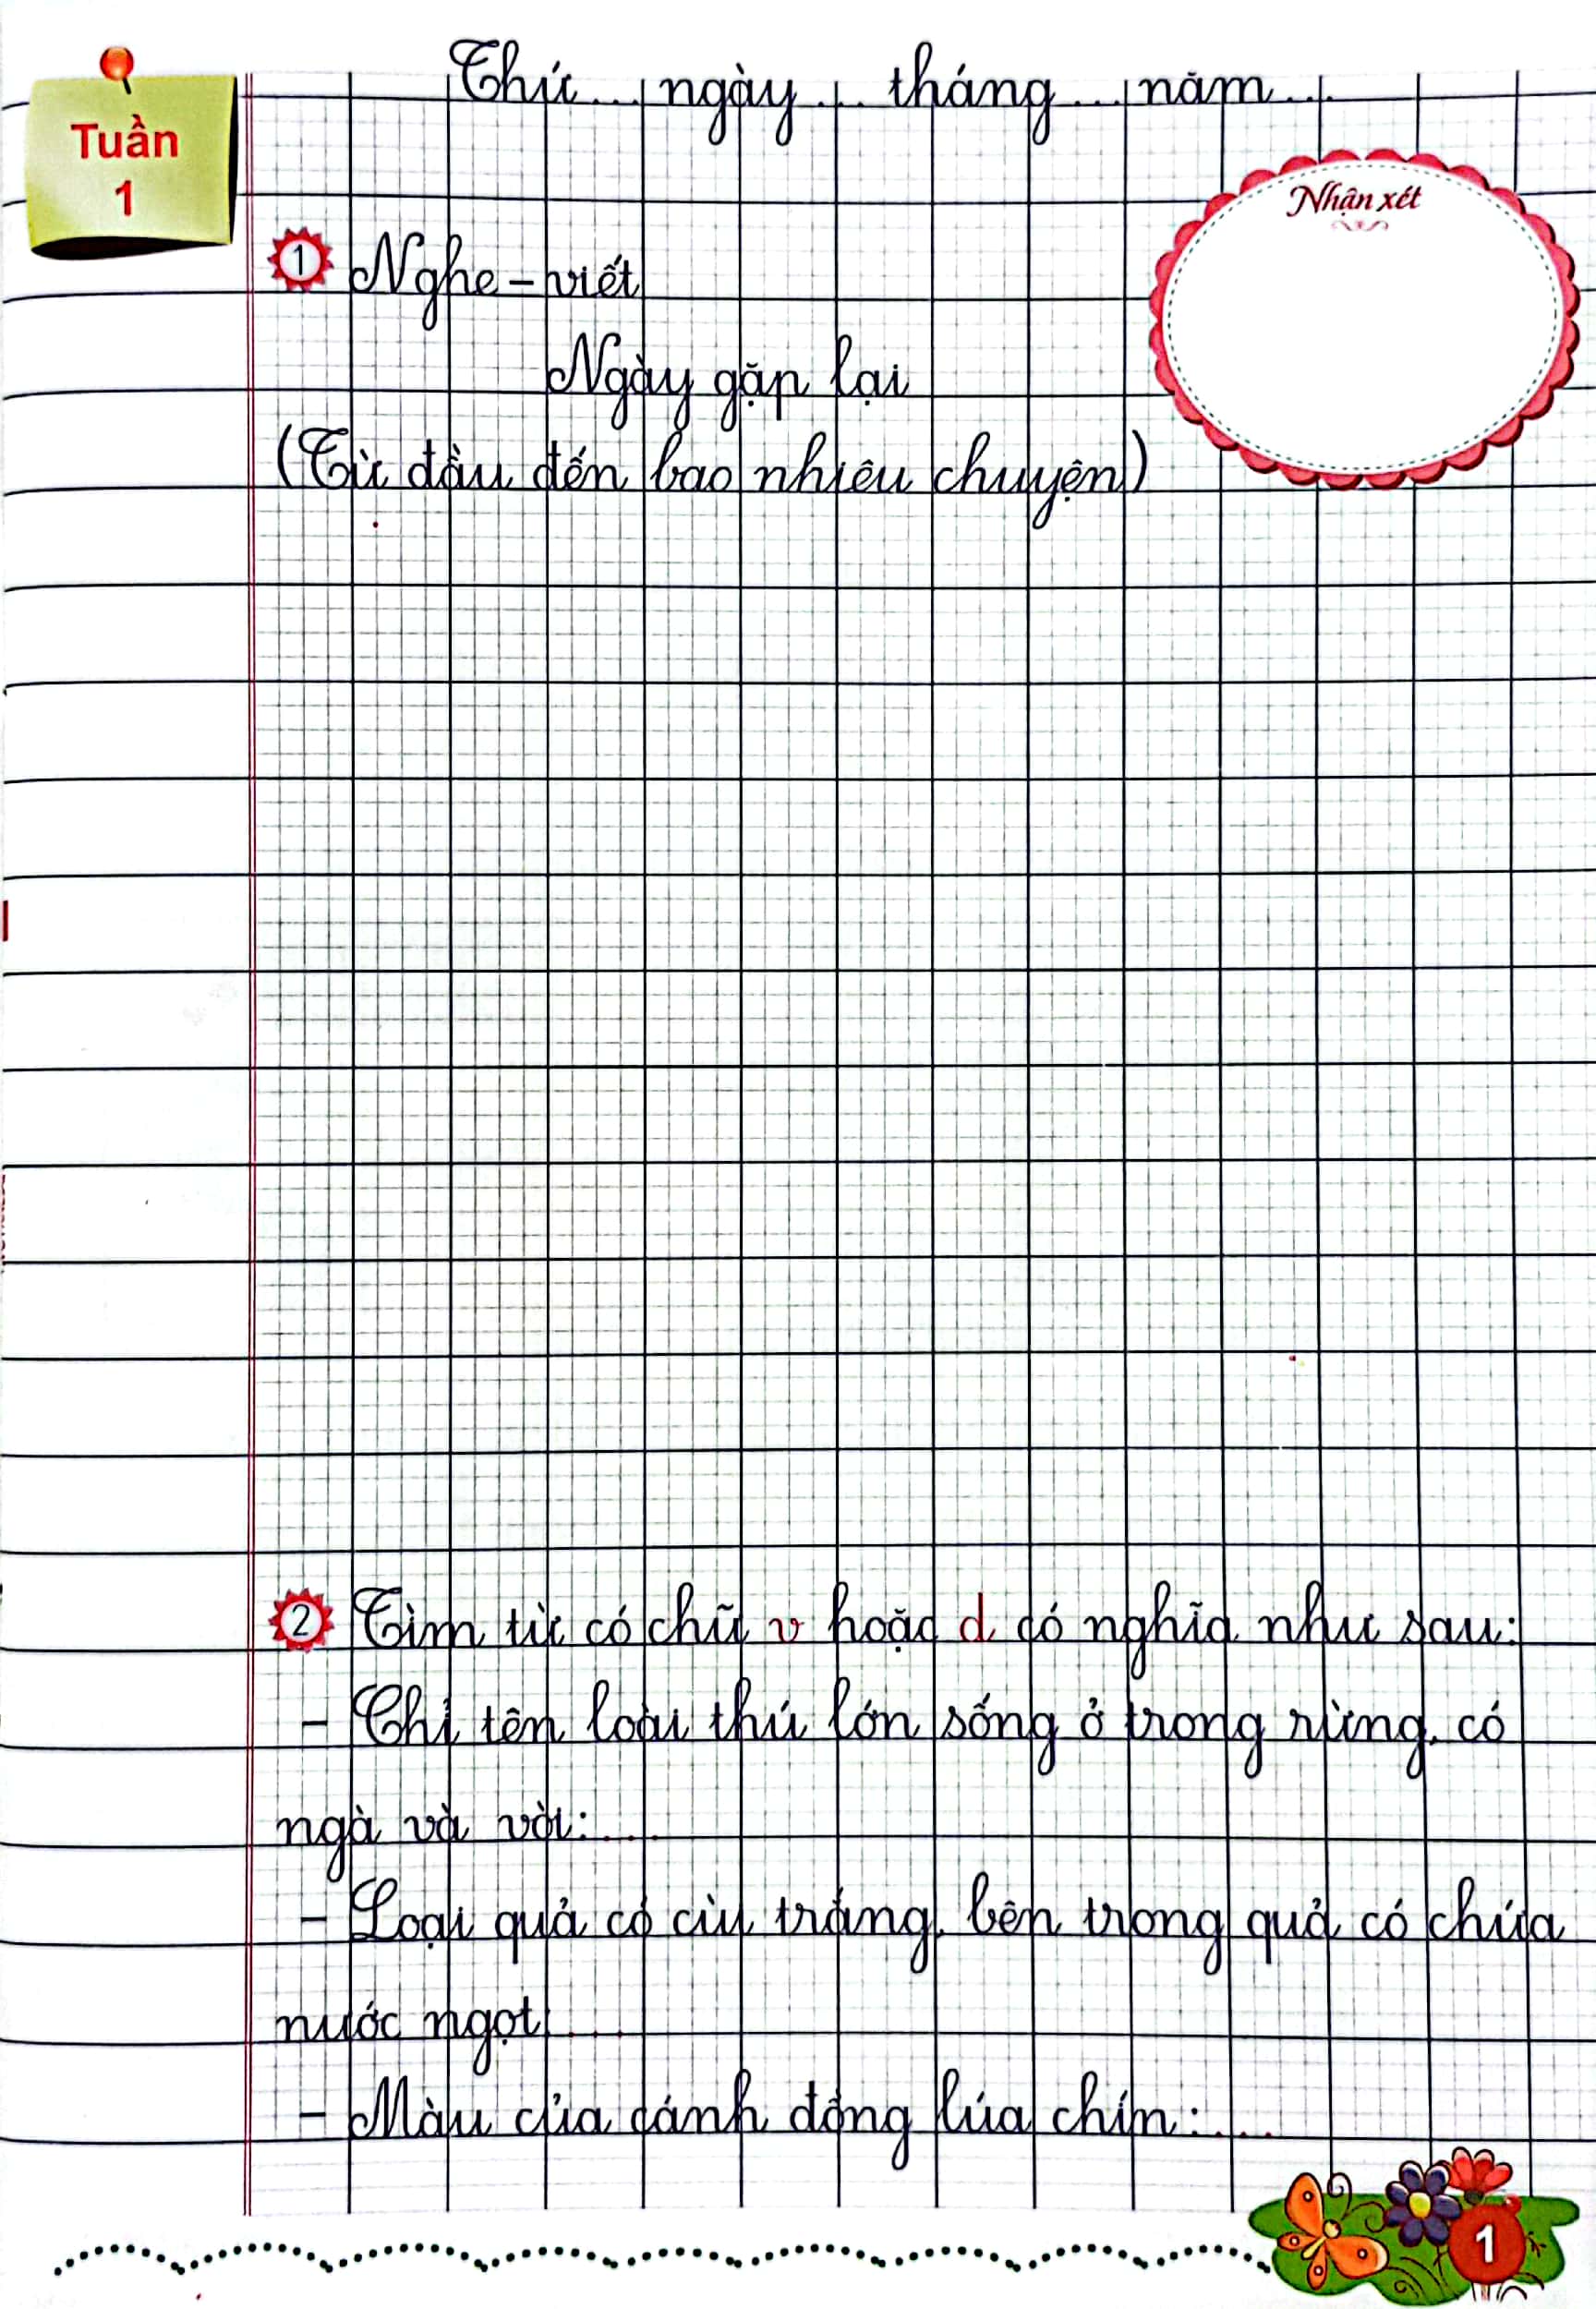 Thứ.... ngày.... tháng.... năm....
Tuần
1
Nhận xét
1 Nghe - viết
Ngày gặp lại
(Từ đầu đến bao nhiêu chuyện)
2 Tìm từ có chữ v hoặc d có nghĩa như sau:
- Chỉ tên loài thú lớn sống ở trong rừng, có
ngà và vòi:....
- Loại quả có cùi trắng, bên trong quả có chứa
nước ngọt....
- Màu của cánh đồng lúa chín:....
1